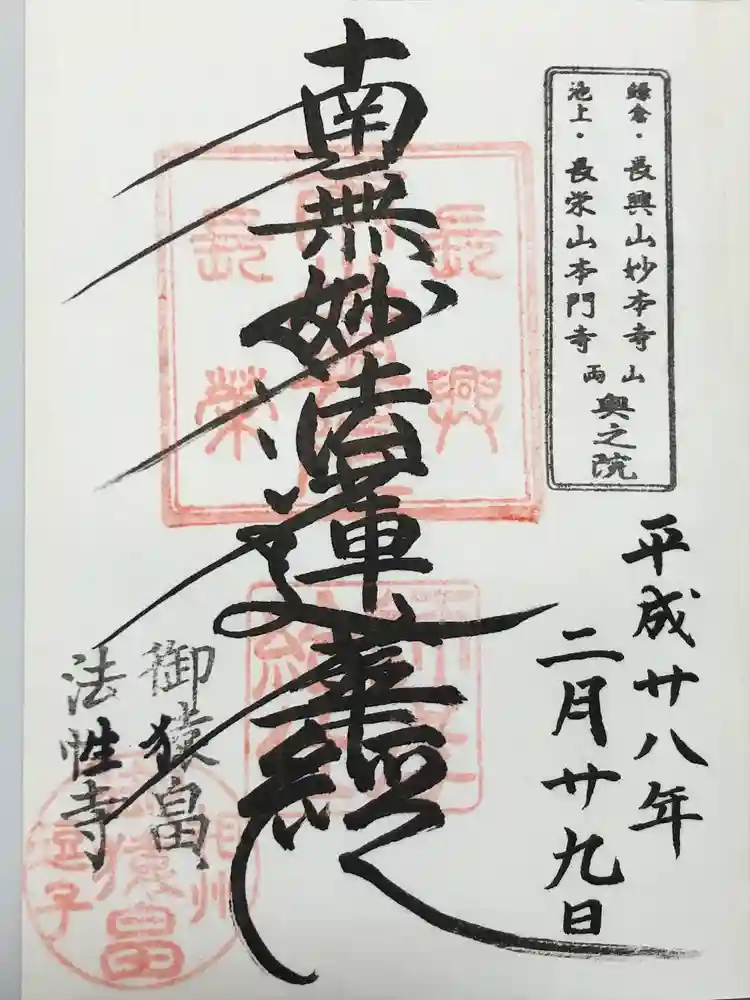 鎌倉・長興山妙本寺
池上・長栄山本門寺
両山奥之院
平成廿八年
二月廿九日
南無妙法蓮華経
御猿畠
法性寺
長興
長榮
相州
逗子
猿畠